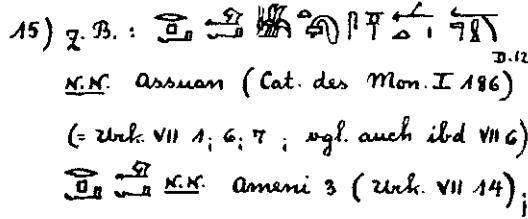 15) z. B. :
D.12
N.N. Assuan (Cat. des Mon. I 186)
(= Urk. VII 1; 6; 7 ; vgl. auch ibd VII 6)
N.N. Ameni 3 (Urk. VII 14);